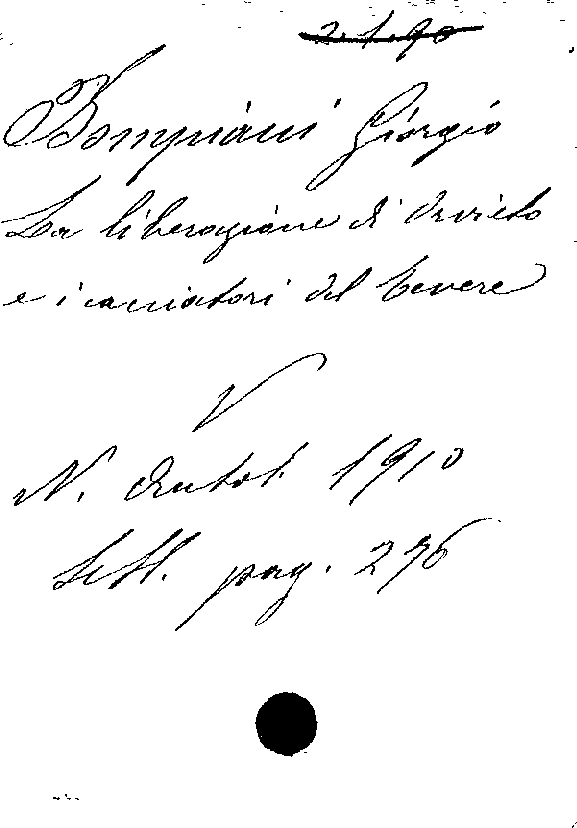 2.1.90
Bompiani Giorgio
La liberazione di Orvieto
e i cacciatori del Tevere
V
N. Antol. 1910
Sett. pag. 276